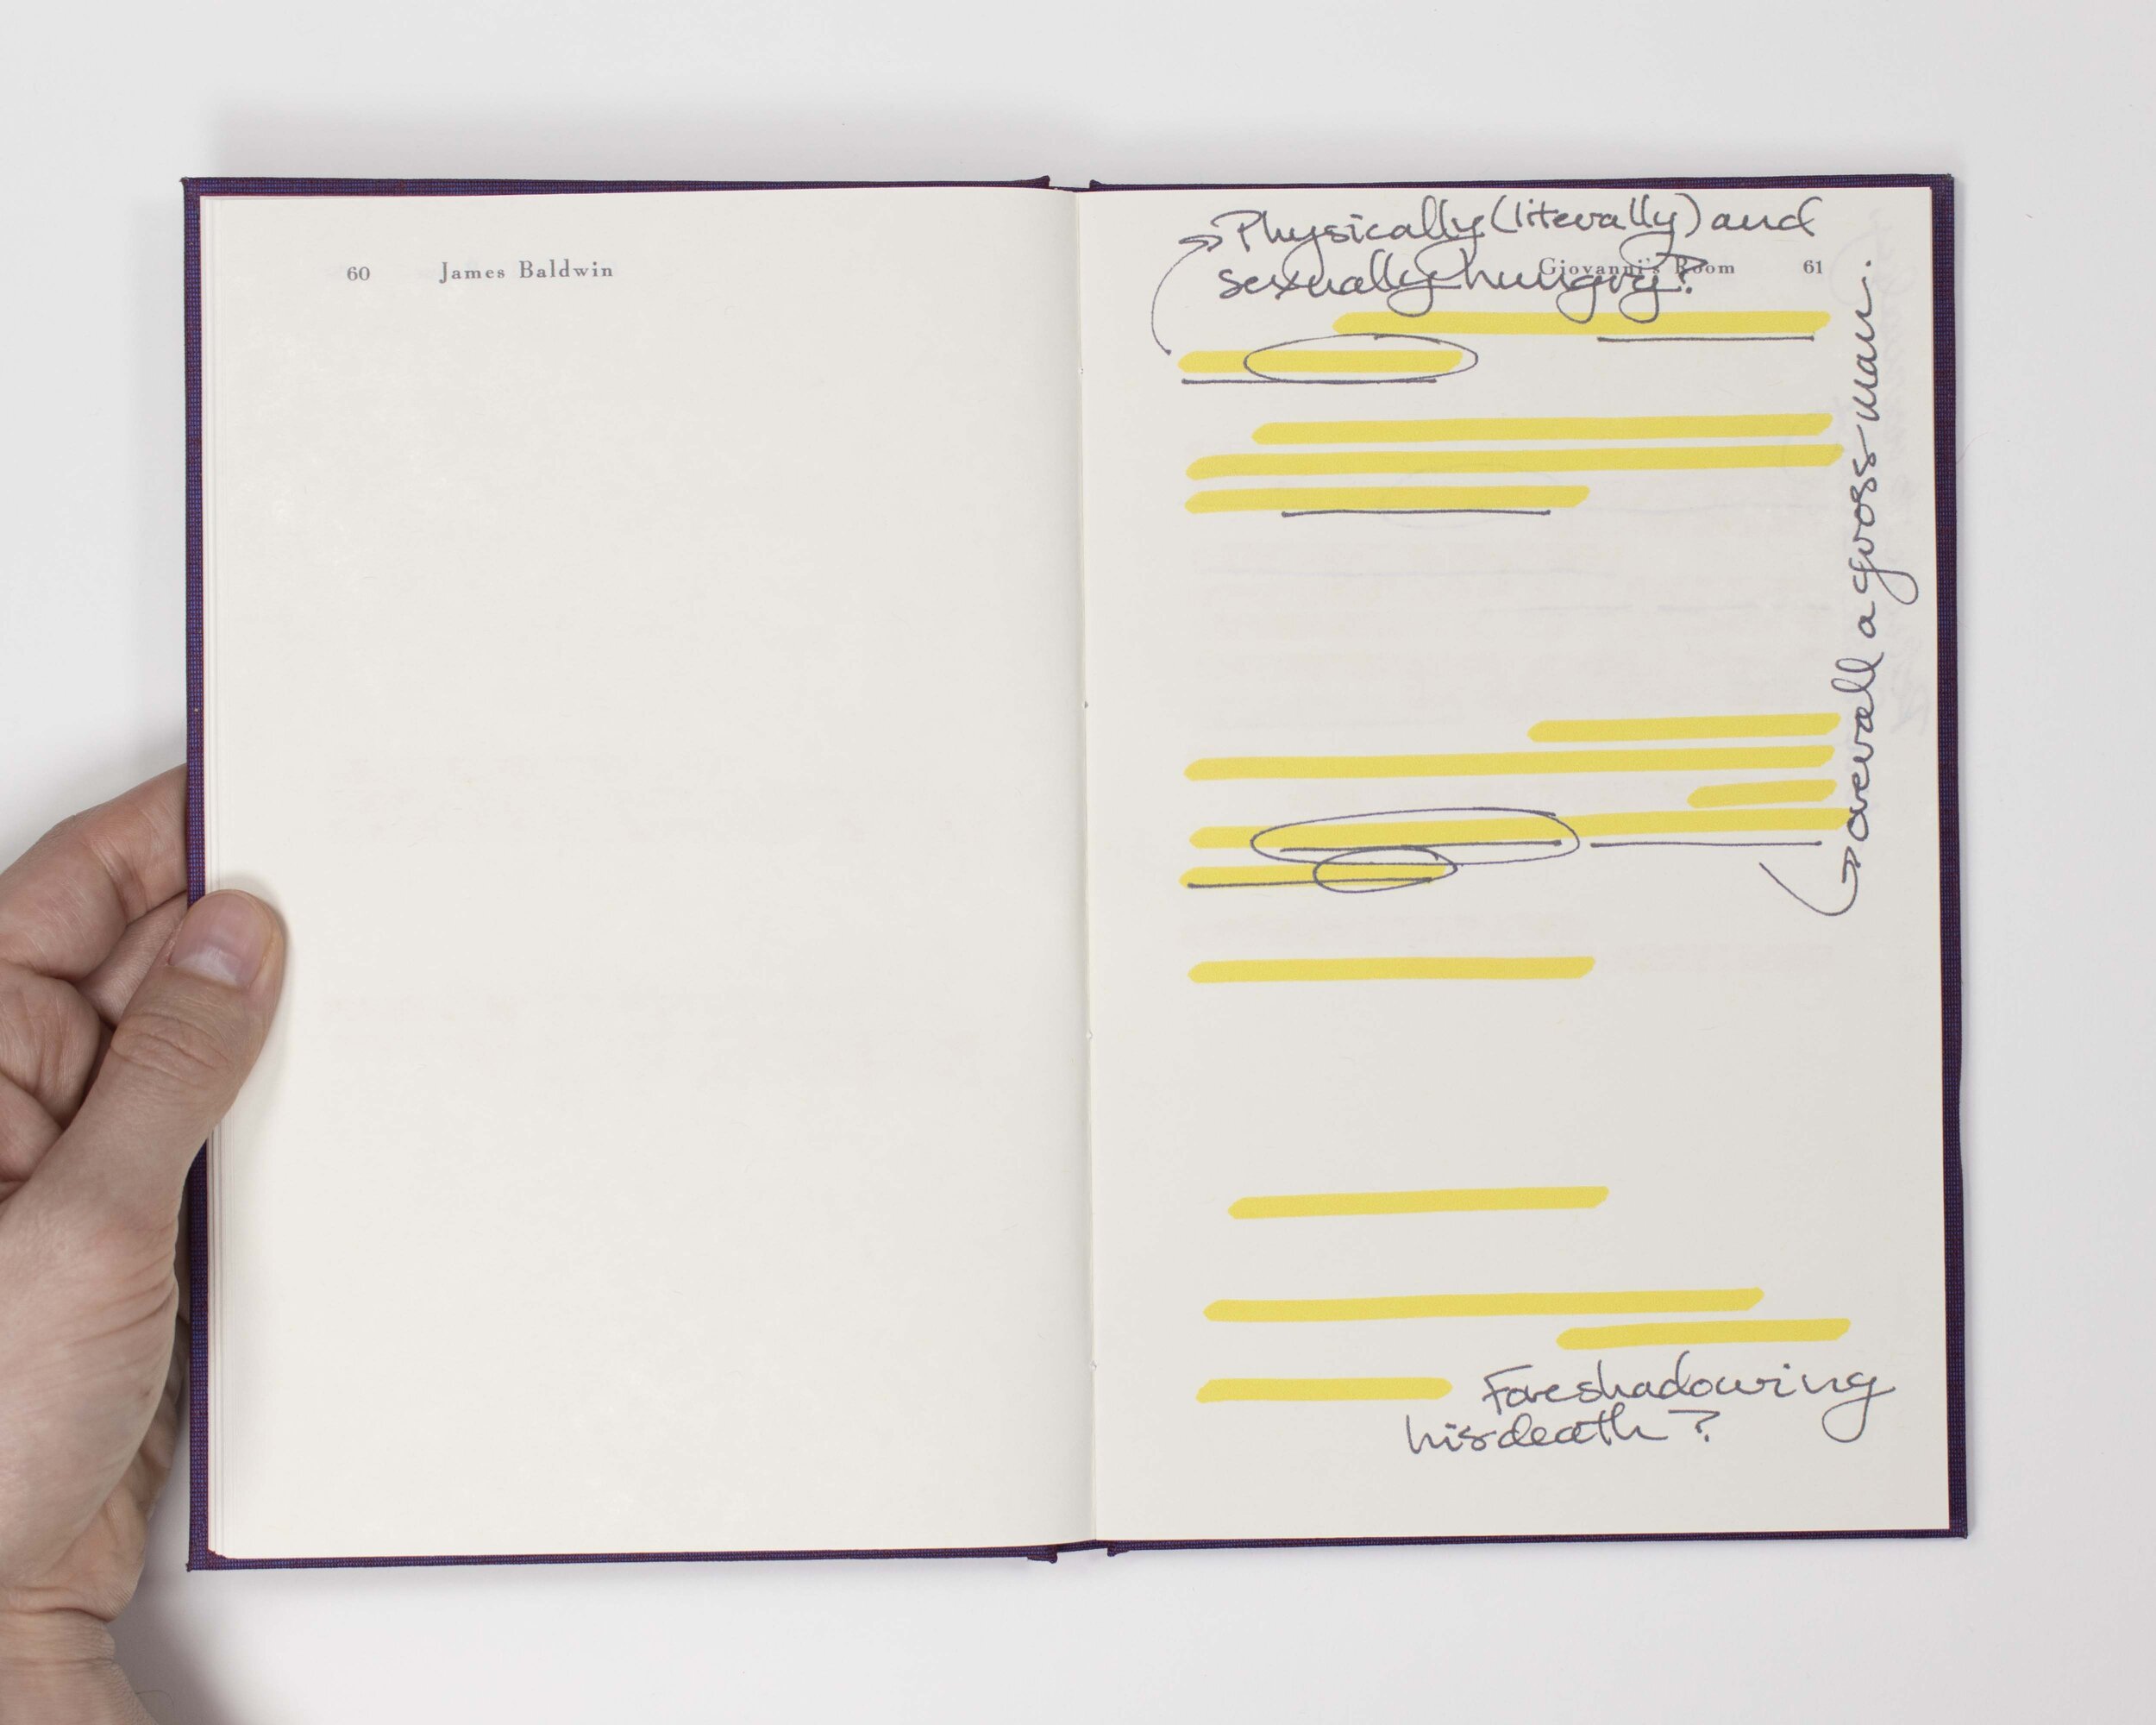 60 James Baldwin
Physically (literally) and
sexually hungry?
Giovanni's Room 61
overall a gross man.
Foreshadowing
his death?